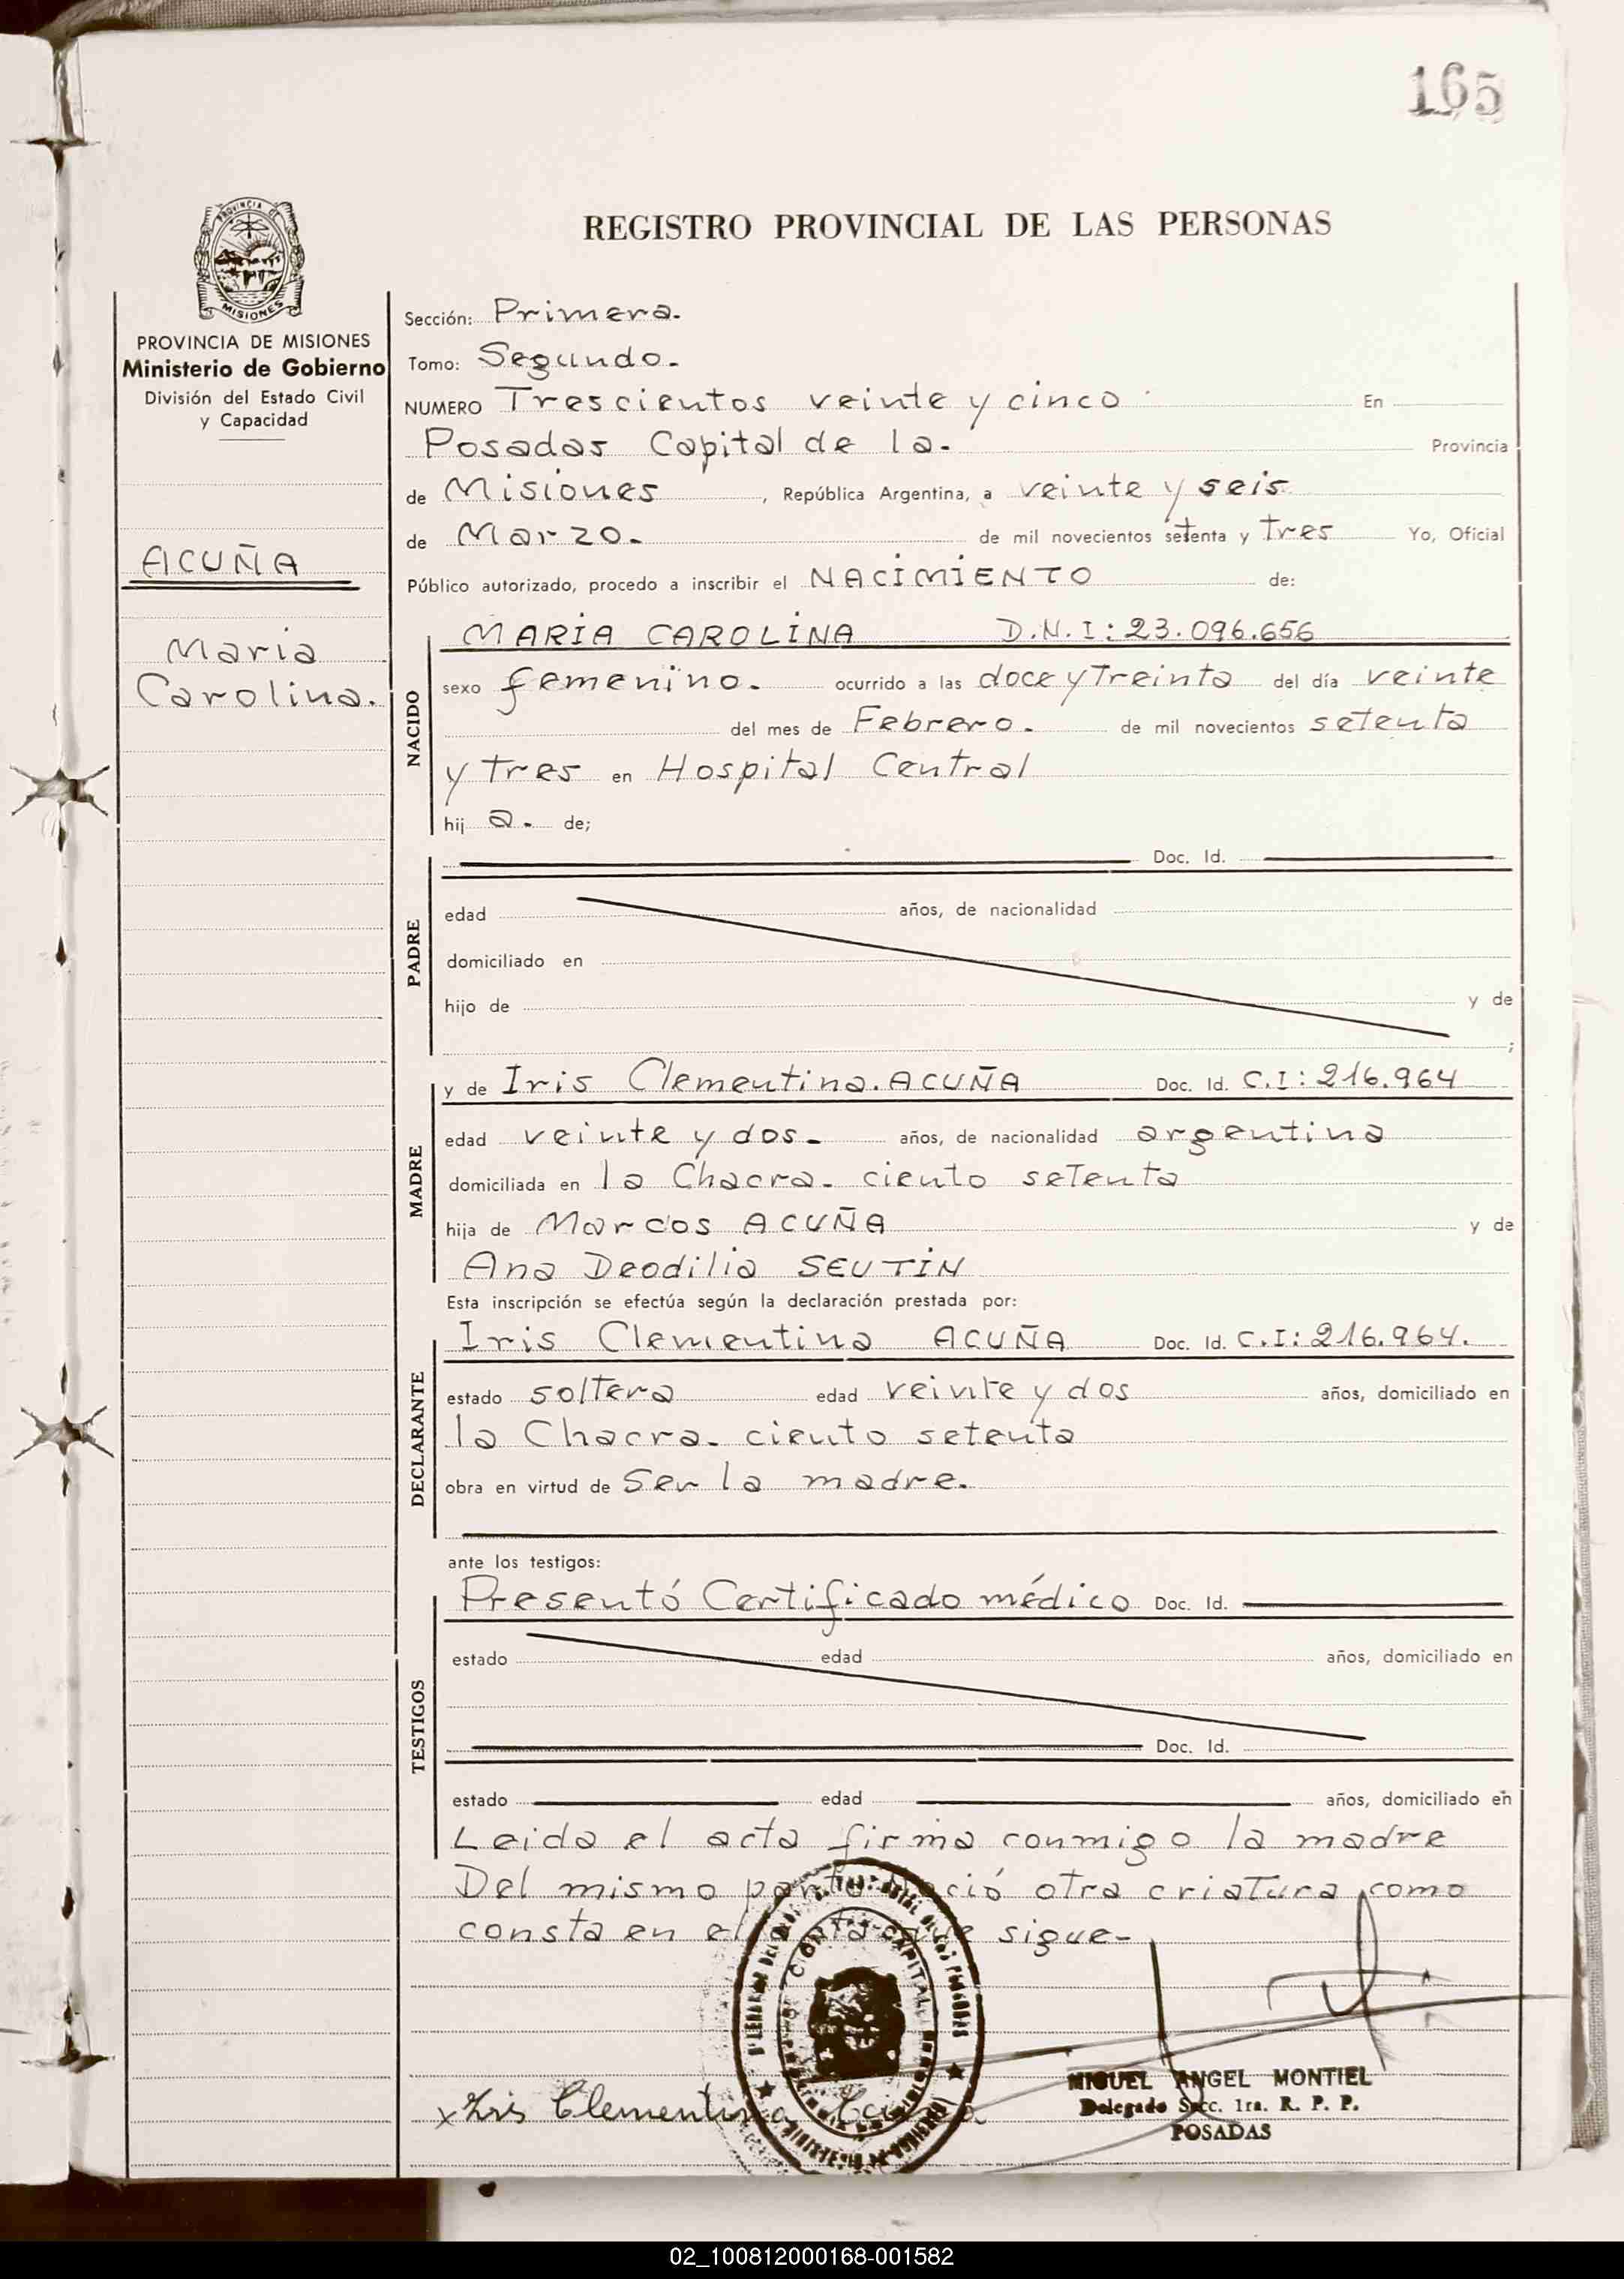 165
PROVINCIA DE
MISIONES
REGISTRO PROVINCIAL DE LAS PERSONAS
PROVINCIA DE MISIONES
Ministerio de Gobierno
División del Estado Civil
y Capacidad
ACUÑA
Maria
Carolina.
Sección: Primera.
Tomo: Segundo.
NUMERO Trescientos veinte y cinco En
Posadas Capital de la. Provincia
de Misiones, República Argentina, a veinte y seis
de Marzo. de mil novecientos setenta y tres Yo, Oficial
Público autorizado, procedo a inscribir el NACIMIENTO de:
NACIDO
MARIA CAROLINA D.N.I: 23.096.656
sexo femenino. ocurrido a las doce y Treinta del día veinte
del mes de Febrero. de mil novecientos setenta
y tres en Hospital Central
hij a. de;
PADRE
Doc. Id.
edad años, de nacionalidad
domiciliado en
hijo de y de
;
MADRE
y de Iris Clementina. ACUÑA Doc. Id. C.I: 216.964
edad veinte y dos. años, de nacionalidad argentina
domiciliada en la Chacra. ciento setenta
hija de Marcos ACUÑA y de
Ana Deodilia SEUTIN
Esta inscripción se efectúa según la declaración prestada por:
DECLARANTE
Iris Clementina ACUÑA Doc. Id. C.I: 216.964.
estado soltera edad veinte y dos años, domiciliado en
la Chacra. ciento setenta
obra en virtud de Ser la madre.
ante los testigos:
TESTIGOS
Presentó Certificado médico Doc. Id.
estado edad años, domiciliado en
Doc. Id.
estado edad años, domiciliado en
Leida el acta firma conmigo la madre
Del mismo parto nació otra criatura como
consta en el acta que sigue-
x Iris Clementina
MIGUEL ANGEL MONTIEL
Delegado Secc. 1ra. R. P. P.
POSADAS
02_100812000168-001582